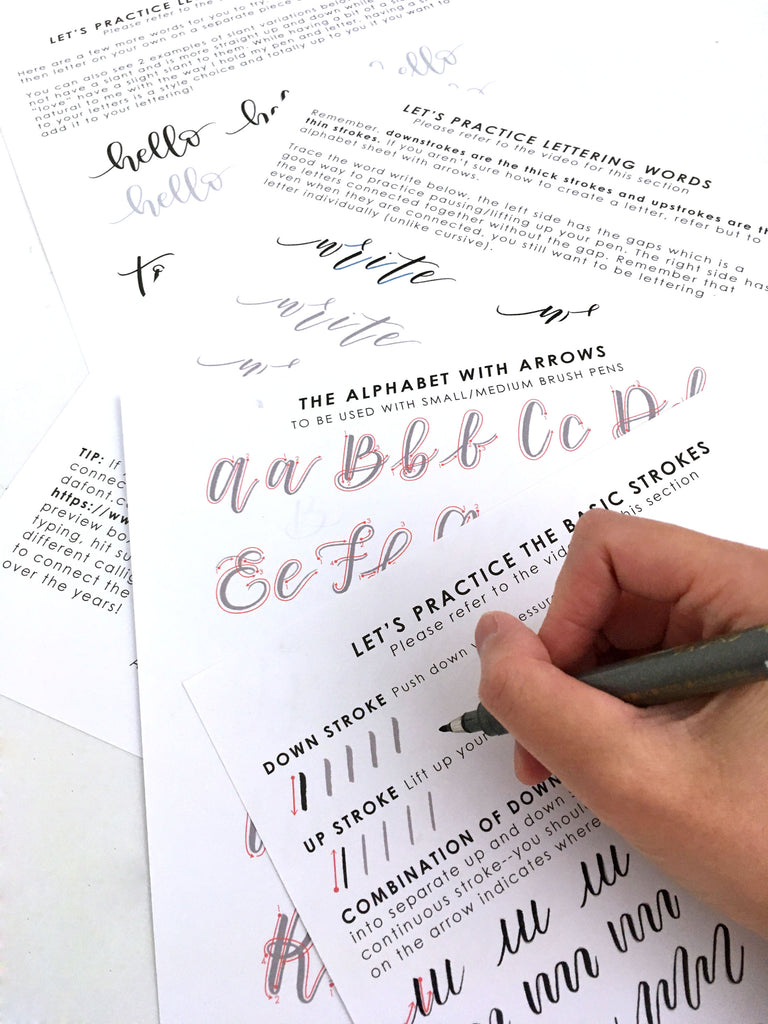 LET'S PRACTICE LE
Please refer to the
Here are a few more words for you to try.
then letter on your own on a separate piece
You can also see 2 examples of slant variations below
not have a slant and is more straight up and down while
"love" have a slight slant to them. While having a bit of a sla
natural to me with the way I hold my pen and letter, having a
to your letters is a style choice and totally up to you if you want to
add it to your lettering!
hello
hello
to
LET'S PRACTICE LETTERING WORDS
Please refer to the video for this section
Remember, downstrokes are the thick strokes and upstrokes are th
thin strokes. If you aren't sure how to create a letter, refer but to
alphabet sheet with arrows.
Trace the word write below, the left side has the gaps which is a
good way to practice pausing/lifting up your pen. The right side has
the letters connected together without the gap. Remember that
even when they are connected, you still want to be lettering
letter individually (unlike cursive).
write
write
THE ALPHABET WITH ARROWS
TO BE USED WITH SMALL/MEDIUM BRUSH PENS
a a B b b C c D
E e F f
K
TIP: If
connec
dafont.c
https://ww
preview bo
typing, hit su
different callig
to connect the
over the years!
LET'S PRACTICE THE BASIC STROKES
Please refer to the vid this section
DOWN STROKE Push down y essur
UP STROKE Lift up your
COMBINATION OF DOWN
into separate up and down
continuous stroke--you shoul
on the arrow indicates where